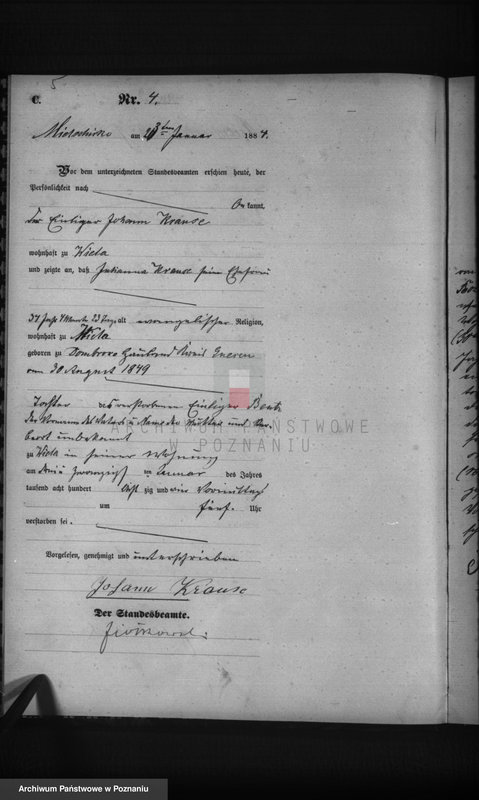 5
C.
Nr. 4.
Mietschisko am 23ten Januar 1884.
Vor dem unterzeichneten Standesbeamten erschien heute, der
Persönlichkeit nach
bekannt,
Der Einlieger Johann Krause
wohnhaft zu Wiela
und zeigte an, daß Julianna Krause seine Ehefrau
34 Jahr 4 Monate 23 Tage alt evangelischer Religion,
wohnhaft zu Wiela
geboren zu Dombrowo Hauland Kreis
am 30 August 1849
Tochter des verstorbenen Einlieger
der Vorname des Vaters u Name der Mutter und
unbekannt
zu Wiela in seiner Wohnung
am drei zwanzigsten Januar des Jahres
tausend acht hundert achtzig und vier Vormittags
um fünf Uhr
verstorben sei.
Vorgelesen, genehmigt und unterschrieben
Johann Krause
Der Standesbeamte.
ARCHIWUM PAŃSTWOWE
W POZNANIU
Archiwum Państwowe w Poznaniu